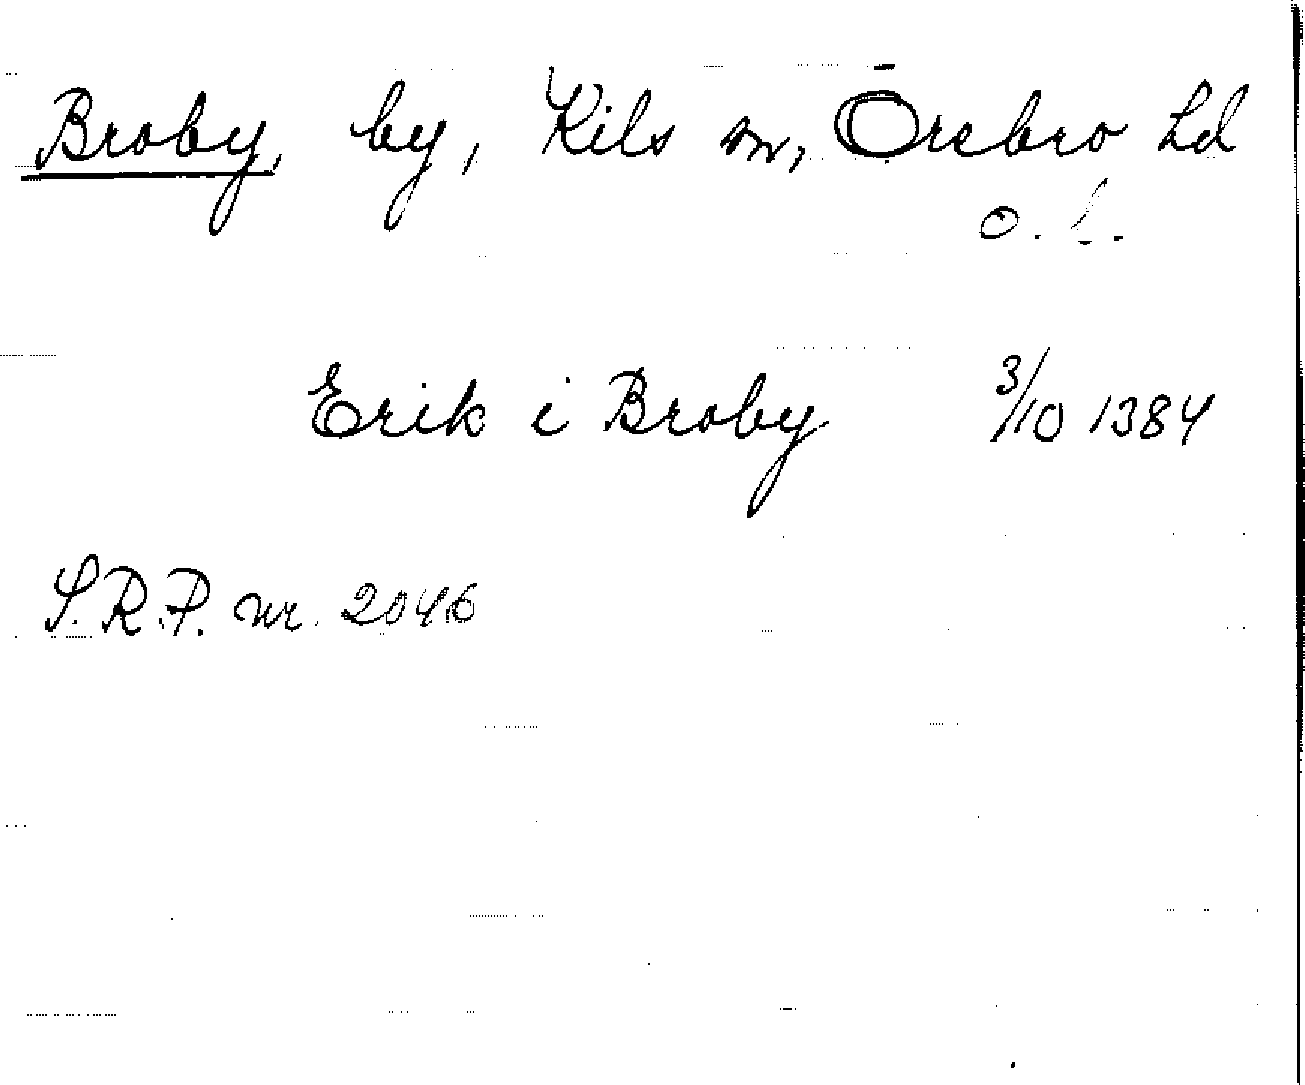 Broby, by, Kils sn, Örebro hd
o. l.
Erik i Broby 3/10 1384
S.R.P. nr. 2046